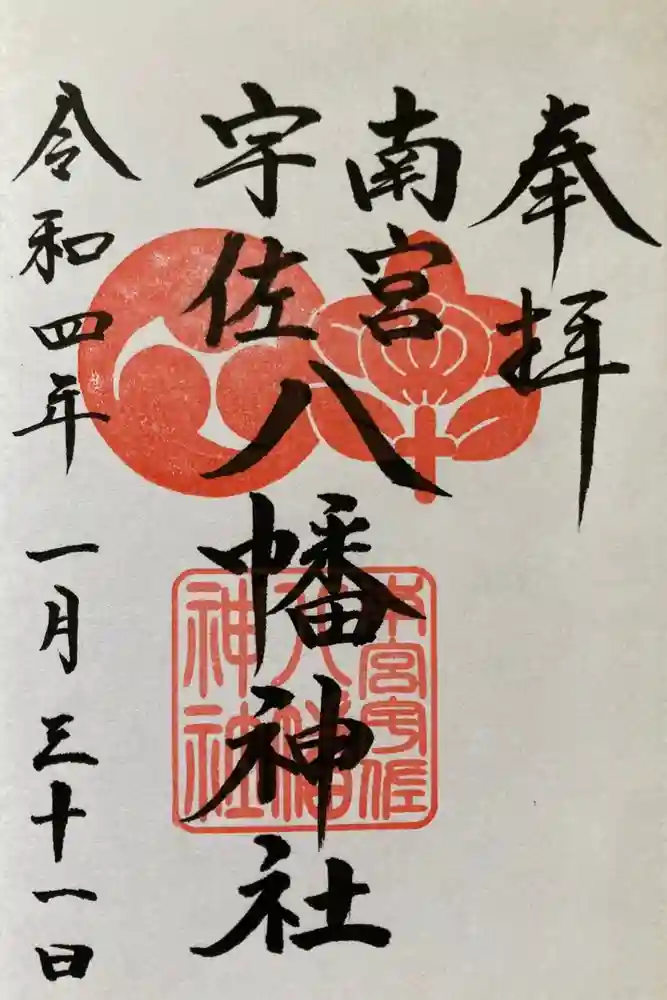 奉拝
南宮
宇佐八幡神社
令和四年一月三十一日
宮宇佐
八幡
神社